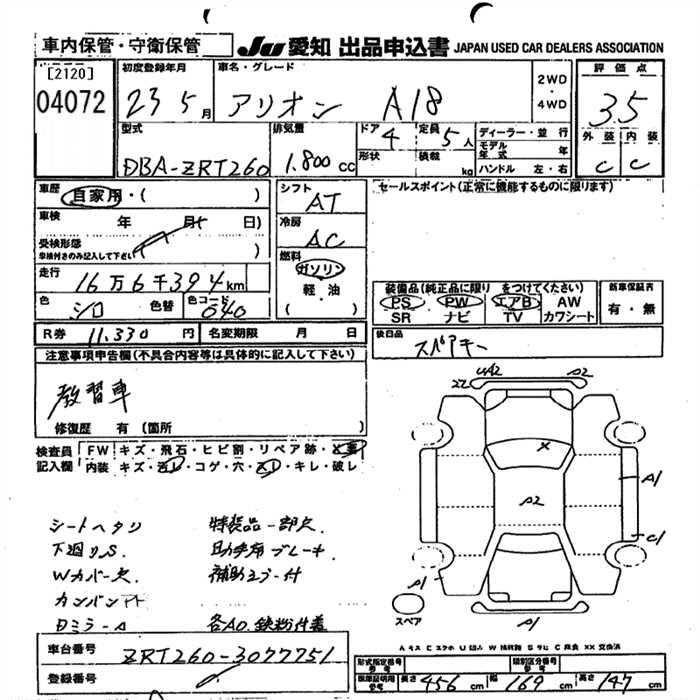 車内保管・守衛保管
JU 愛知 出品申込書 JAPAN USED CAR DEALERS ASSOCIATION
[2120]
04072
初度登録年月
23 5月
車名・グレード
アリオン A18
2WD
・
4WD
評価点
3.5
型式
DBA-ZRT260
排気量
1.800cc
ドア
4
形状
定員
5人
積載
kg
ディーラー・並行
モデル年式 年
ハンドル 左・右
外装 内装
C C
車歴
自家用・( )
車検 年 月( 日)
受検形態
車検付きのみ記入して下さい ( )
シフト
AT
冷房
AC
燃料
ガソリン
軽・油
( )
セールスポイント(正常に機能するものに限ります)
走行
16万6千394km
色
シロ
色替
色コード
040
装備品(純正品に限り をつけてください)
PS PW エアB AW
SR ナビ TV カワシート
新車保証書
有・無
R券 11.330円
名変期限 月 日
後日品
スペアキー
注意事項申告欄(不具合内容等は具体的に記入して下さい)
教習車
修復歴 有(箇所
検査員
記入欄
FW キズ・飛石・ヒビ割・リペア跡・
内装 キズ・汚レ・コゲ・穴・スレ・キレ・破レ
シートヘタリ
下廻りS.
Wカバー欠
カンバン
日ミラーA
特装品一部欠
助手席ブレーキ
補助ミラー付
各A0.鉄粉付着
U42 S2
X2
X
S2
A1
C1
P1
P1
スペア
車台番号
ZRT260-3077751
登録番号
形式指定番号
参考
類別区分番号
参考
車庫証明用
参考
長さ 456cm
幅 169cm
高さ 147cm